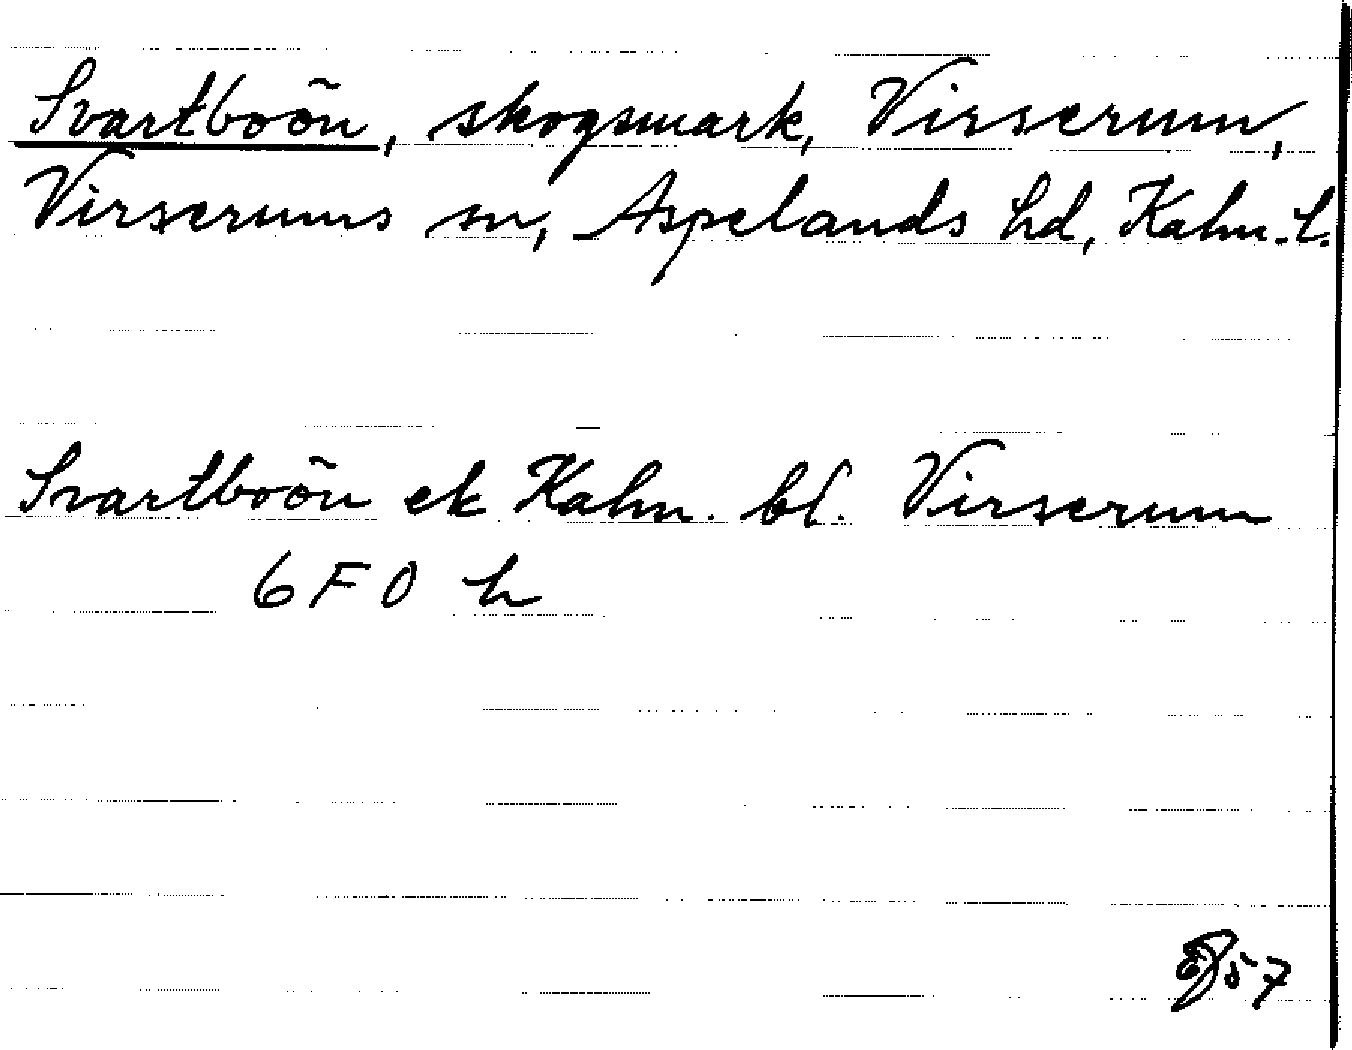 Svartboön, skogsmark, Virserum,
Virserums sn, Aspelands hd, Kalm. l.
Svartboön ek Kalm. bl. Virserum
6 F 0 h
57